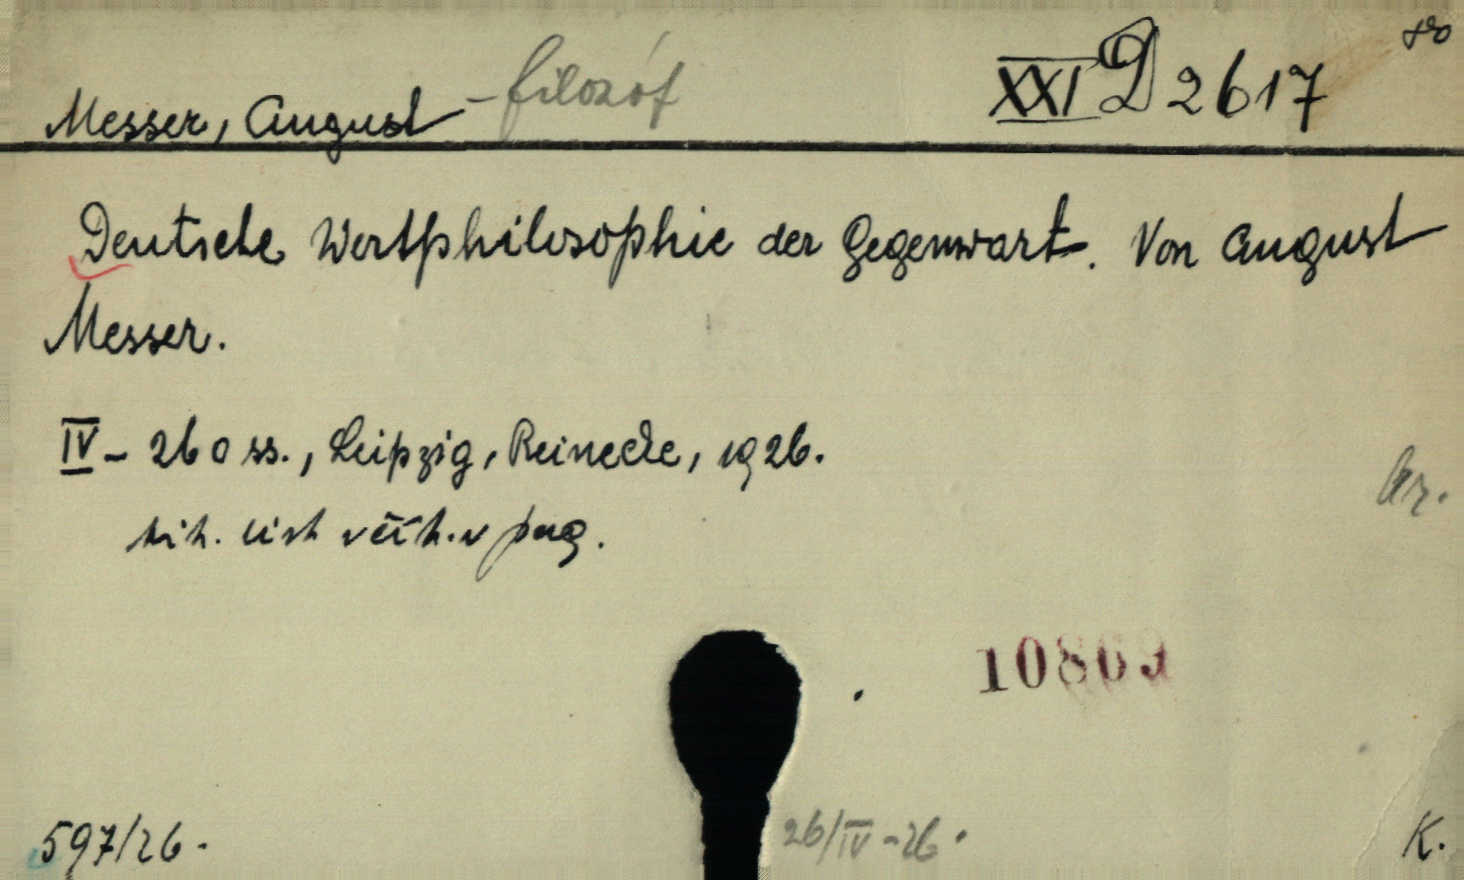 Messer, August - filozóf
XXI D 2617
80
Deutsche Wertphilosophie der Gegenwart. Von August
Messer.
IV - 260 ss., Leipzig, Reinecke, 1926.
tit. list v pag.
10869
597/26.
26/IV - 26.
K.